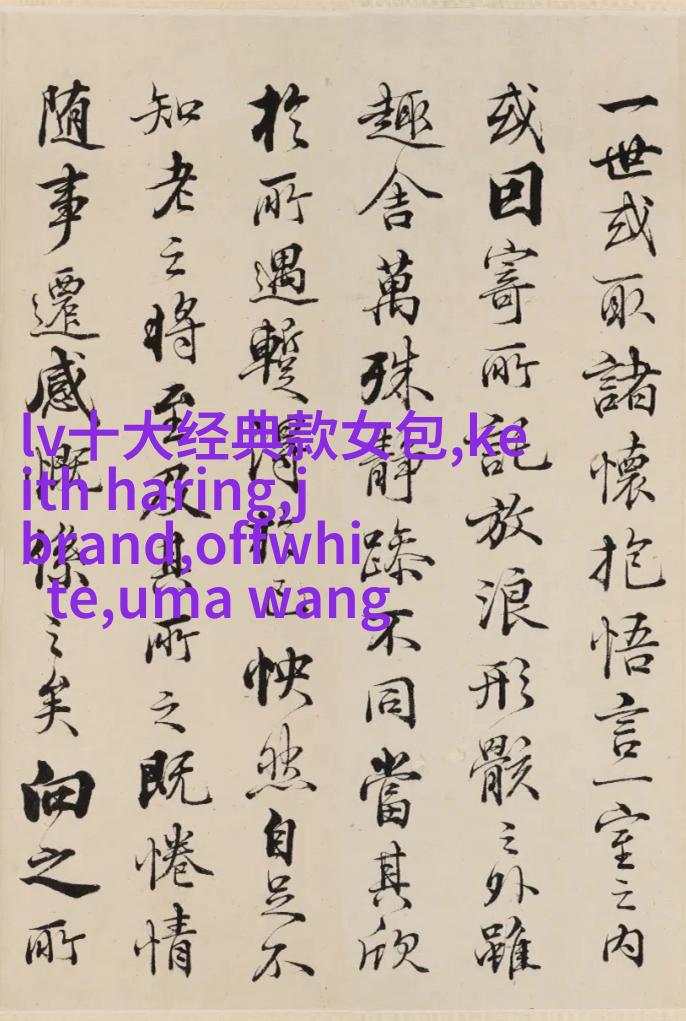 一世或取諸懷抱悟言一室之内
或因寄所託放浪形骸之外雖
趣舍萬殊静躁不同當其欣
於所遇暫得於己怏然自足不
知老之將至及其所之既惓情
随事遷感慨係之矣向之所
lv十大经典款女包,ke
ith haring,j
brand,offwhi
te,uma wang